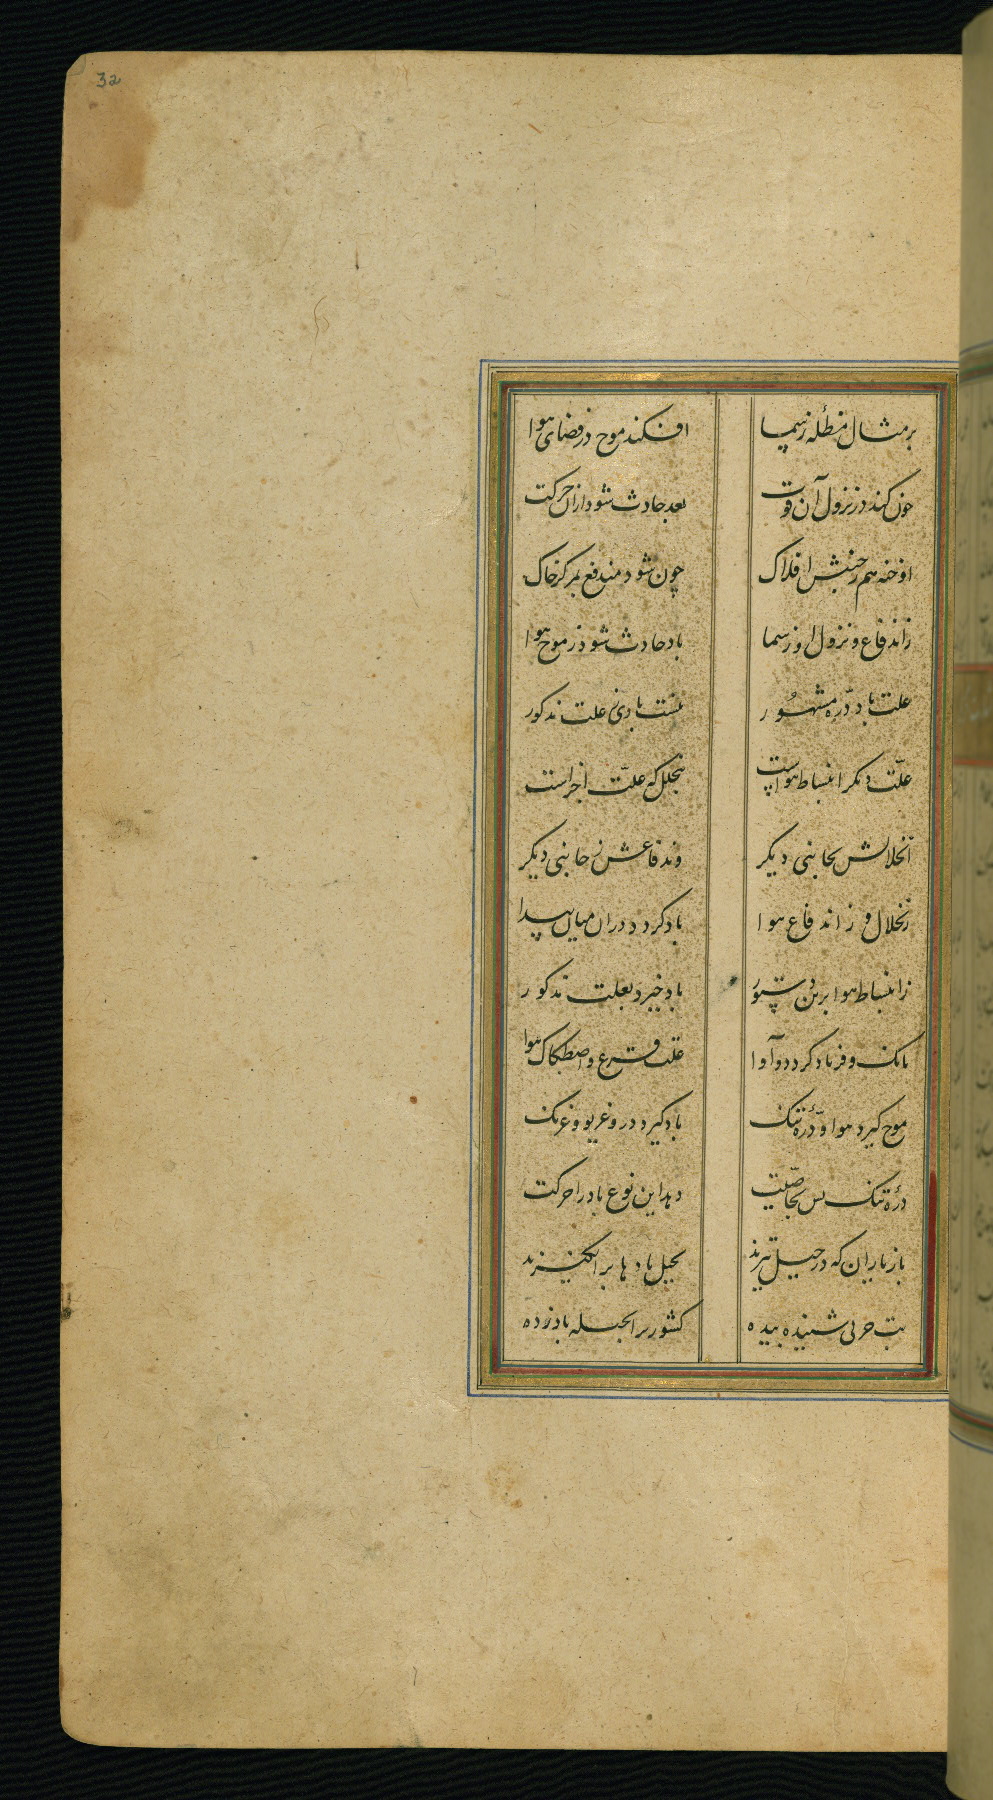 32
بر مثال مظله ز سما
افکند موج در فضای هوا
چون کند در نزول آن قوت
بعد حادث شود ازان حرکت
ادخنه هم ز جنبش افلاک
چون شود مندفع بمرکز خاک
ز اندفاع و نزول او ز سما
باد حادث شود ز موج هوا
علت باد دره مشهور
نیست بادی علت مذکور
علت دیگر انبساط هواست
بتخلل که علت اجزاست
بجانبی دیگر
وندفاعش ز جانبی دیگر
و ز اندفاع هوا
باد گردد دران میان پیدا
ز انبساط هوا برین دستور
باد خیزد بعلت مذکور
بانک و فریاد کردد و آوا
علت قرع و اصطکاک هوا
موج گیرد هوا و دره تنک
باد گیرد درو غریو و غرنک
دره تنک بس بخاصیت
دهد این نوع باد را حرکت
باز یاران که در حیل تیزند
بحیل بادها برانگیزند
شنیده
کشور باد زده